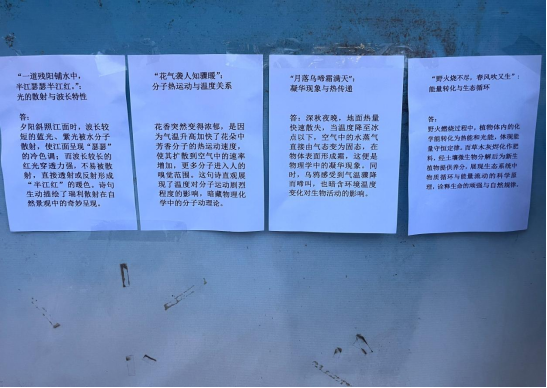 “一道残阳铺水中，
半江瑟瑟半江红。”：
光的散射与波长特性
答：
夕阳斜照江面时，波长较
短的蓝光、紫光被水分子
散射，使江面呈现“瑟瑟”
的冷色调；而波长较长的
红光穿透力强，不易被散
射，直接透射或反射形成
“半江红”的暖色。诗句
生动描绘了瑞利散射在自
然景观中的奇妙呈现。
“花气袭人知骤暖”：
分子热运动与温度关系
答：
花香突然变得浓郁，是因
为气温升高加快了花朵中
芳香分子的热运动速度，
使其扩散到空气中的速率
增加，更多分子进入人的
嗅觉范围。这句诗直观展
现了温度对分子运动剧烈
程度的影响，暗藏物理化
学中的分子动理论。
“月落乌啼霜满天”：
凝华现象与热传递
答：深秋夜晚，地面热量
快速散失，当温度降至冰
点以下，空气中的水蒸气
直接由气态变为固态，在
物体表面形成霜，这便是
物理学中的凝华现象。同
时，乌鸦感受到气温骤降
而啼叫，也暗含环境温度
变化对生物活动的影响。
“野火烧不尽，春风吹又生”：
能量转化与生态循环
答：
野火燃烧过程中，植物体内的化
学能转化为热能和光能，体现能
量守恒定律。而草木灰烬化作肥
料，经土壤微生物分解后为新生
植物提供养分，展现生态系统中
物质循环与能量流动的科学原
理，诠释生命的顽强与自然规律。